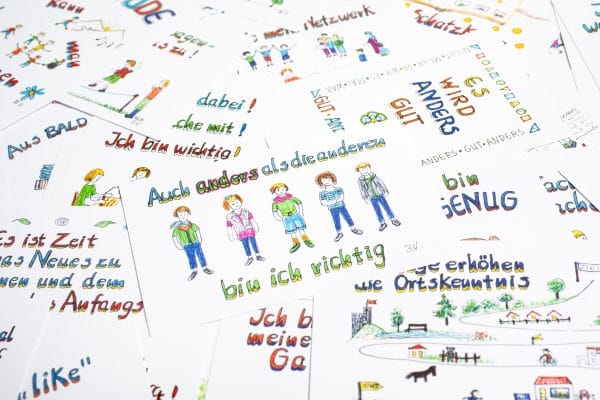 Kann
ENDE
mein Netzwerk
Schatzk
MICH
gegen-
is zu!
dabei!
che mit!
ES
WIRD
ANDERS
GUT
GUT • AN
ANDERS • GUT • ANDERS
Aus BALD
Ich bin wichtig!
Auch anders als die anderen
bin ich richtig
bin
GENUG
Es ist Zeit
as Neues zu
nen und dem
Anfangs
ge erhöhen
die Ortskenntnis
Ich b
meine
Ga
al
"like"